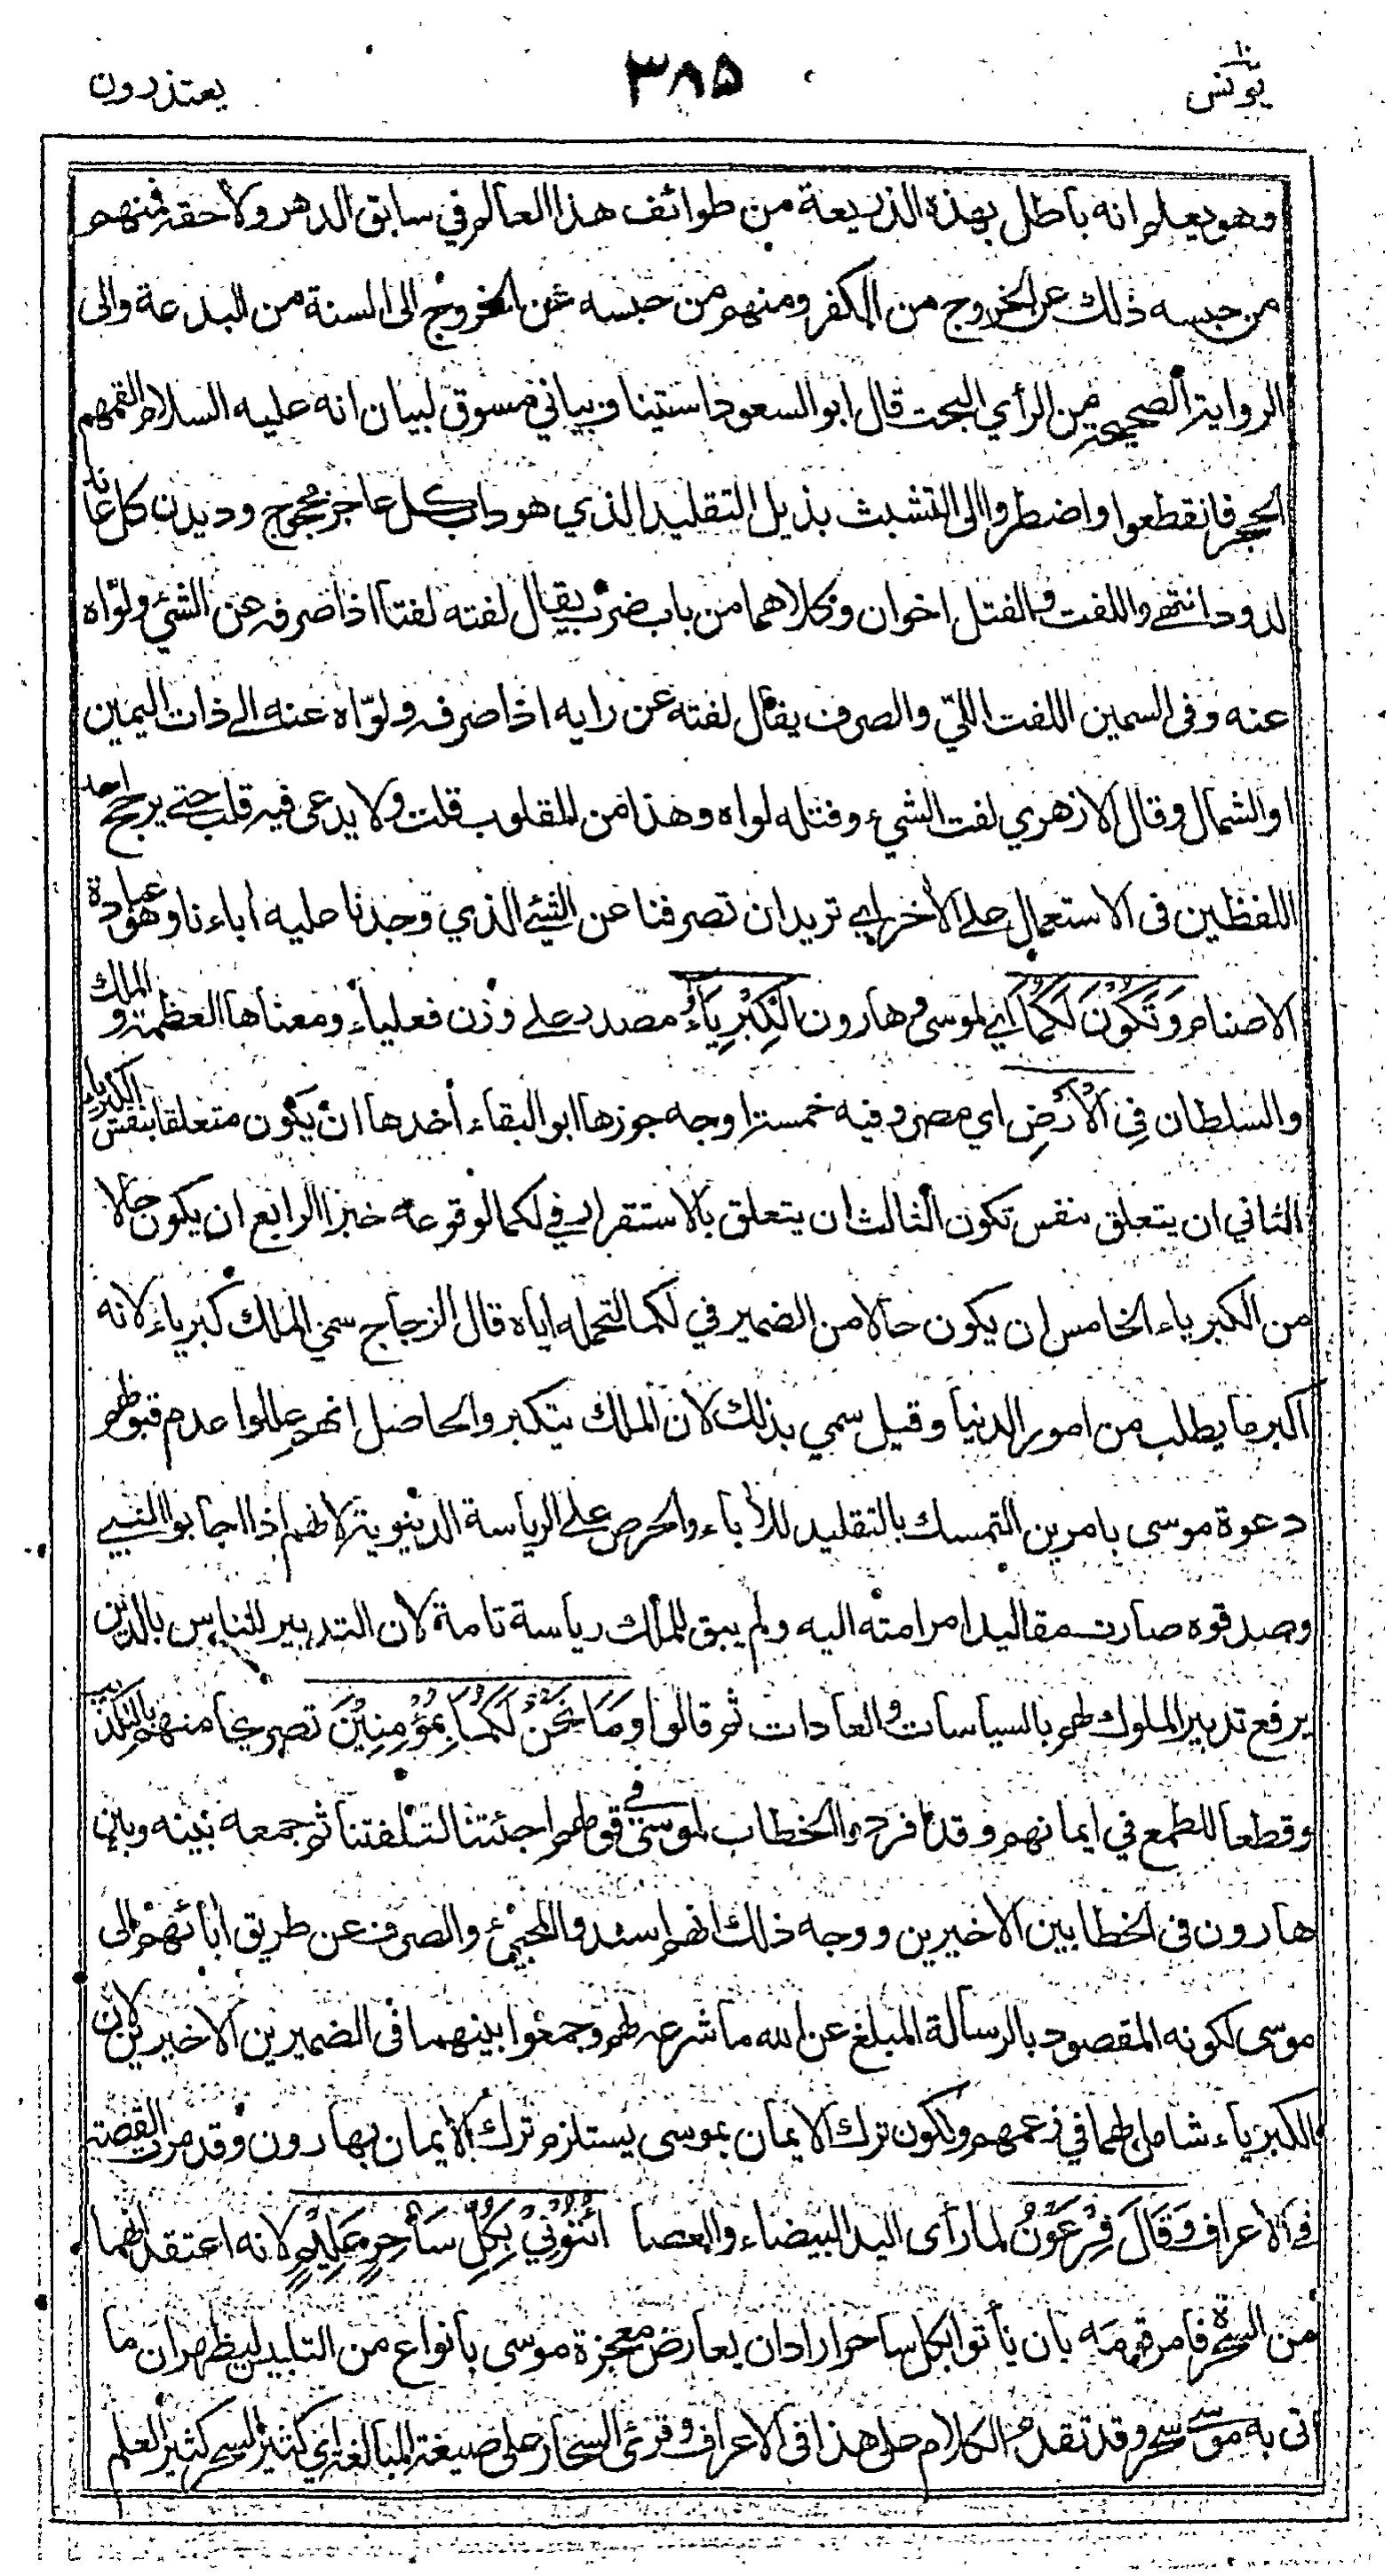 ١٠
يونس
٣٨٥
يعتذرون
وهو يعلم انه باطل بهذه الذريعة من طوائف هذا العالم في سابق الدهر ولاحقه فمنهم
من حبسه ذلك عن الخروج من الكفر ومنهم من حبسه عن الخروج الى السنة من البدعة والى
الرواية الصحيحة من الرأي البحت قال ابو السعود استيناف بياني مسوق لبيان انه عليه السلام القمهم
الحجر فانقطعوا واضطروا الى التشبث بذيل التقليد الذي هو داب كل عاجز محجوج وديدن كل عاند
لدود انتهى واللفت والفتل اخوان وكلاهما من باب ضرب يقال لفته لفتا اذا صرفه عن الشئ ولوّاه
عنه وفى السمين اللفت اللّي والصرف يقال لفته عن رايه اذا صرفه ولوّاه عنه الى ذات اليمين
او الشمال وقال الازهري لفت الشيء وفتله لواه وهذا من المقلوب قلت ولا يدعى فيه قلب حتى يرجح احد
اللفظين فى الاستعمال على الأخر اي تريد ان تصرفنا عن الشئ الذي وجدنا عليه اباءنا وهو عبادة
الاصنام وَتَكُوْنَ لَكُمَا اي لموسى وهارون الْكِبْرِيَآءُ مصدر على وزن فعلياء ومعناها العظمة و الملك
والسلطان فِي الْأَرْضِ اي مصر وفيه خمسة اوجه جوزها ابو البقاء أحدها ان يكون متعلقا بنفس الكبرياء
الثاني ان يتعلق بنفس تكون الثالث ان يتعلق بالاستقرار في لكما لوقوعه خبرا الرابع ان يكون حالا
من الكبرياء الخامس ان يكون حالا من الضمير في لكما لتحمله اياه قال الزجاج سمي الملك كبرياء لانه
اكبر ما يطلب من امور الدنيا وقيل سمي بذلك لان الملك يتكبر والحاصل انهم عللوا عدم قبولهم
دعوة موسى بامرين التمسك بالتقليد للأباء والحرص على الرياسة الدنيوية لانهم اذا اجابوا النبي
وصدقوه صارت مقاليد امر امته اليه ولم يبق للملك رياسة تامة لان التدبير للناس بالدين
يرفع تدبير الملوك لهم بالسياسات والعادات ثم قالوا وَمَا نَحْنُ لَكُمَا بِمُؤْمِنِيْنَ تصريحا منهم بالتكذيب
وقطعا للطمع في ايمانهم وقد افردوا الخطاب لموسى في قولهم اجئتنا لتلفتنا ثم جمعه بينه وبين
هارون فى الخطابين الاخيرين ووجه ذلك انهم اسندوا المجيء والصرف عن طريق ابائهم الى
موسى لكونه المقصود بالرسالة المبلغ عن الله ما شرعه لهم وجمعوا بينهما فى الضميرين الاخيرين لان
الكبرياء شامل لهما في زعمهم ولكون ترك الايمان بموسى يستلزم ترك الايمان بهارون وقد مرت القصة
فى الاعراف وَقَالَ فِرْعَوْنُ لما رأى اليد البيضاء والعصا ائْتُوْنِيْ بِكُلِّ سَاحِرٍ عَلِيْمٍ لانه اعتقد انهما
من السحرة فامر قومه بان يأتوا بكل ساحر اراد ان يعارض معجزة موسى بانواع من التلبيس ليظهر ان ما
اتى به موسى سحر وقد تقدم الكلام على هذا فى الاعراف وقرئ السحار على صيغة المبالغة اي كثير السحر كثير العلم